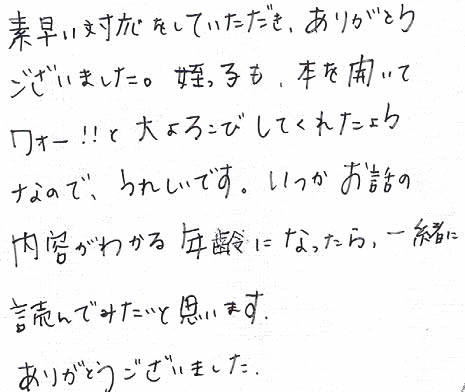 素早い対応をしていただき、ありがとう
ございました。姪っ子も、本を開いて
ワォー!!と大よろこびしてくれたよう
なので、うれしいです。いつかお話の
内容がわかる年齢になったら、一緒に
読んでみたいと思います。
ありがとうございました。